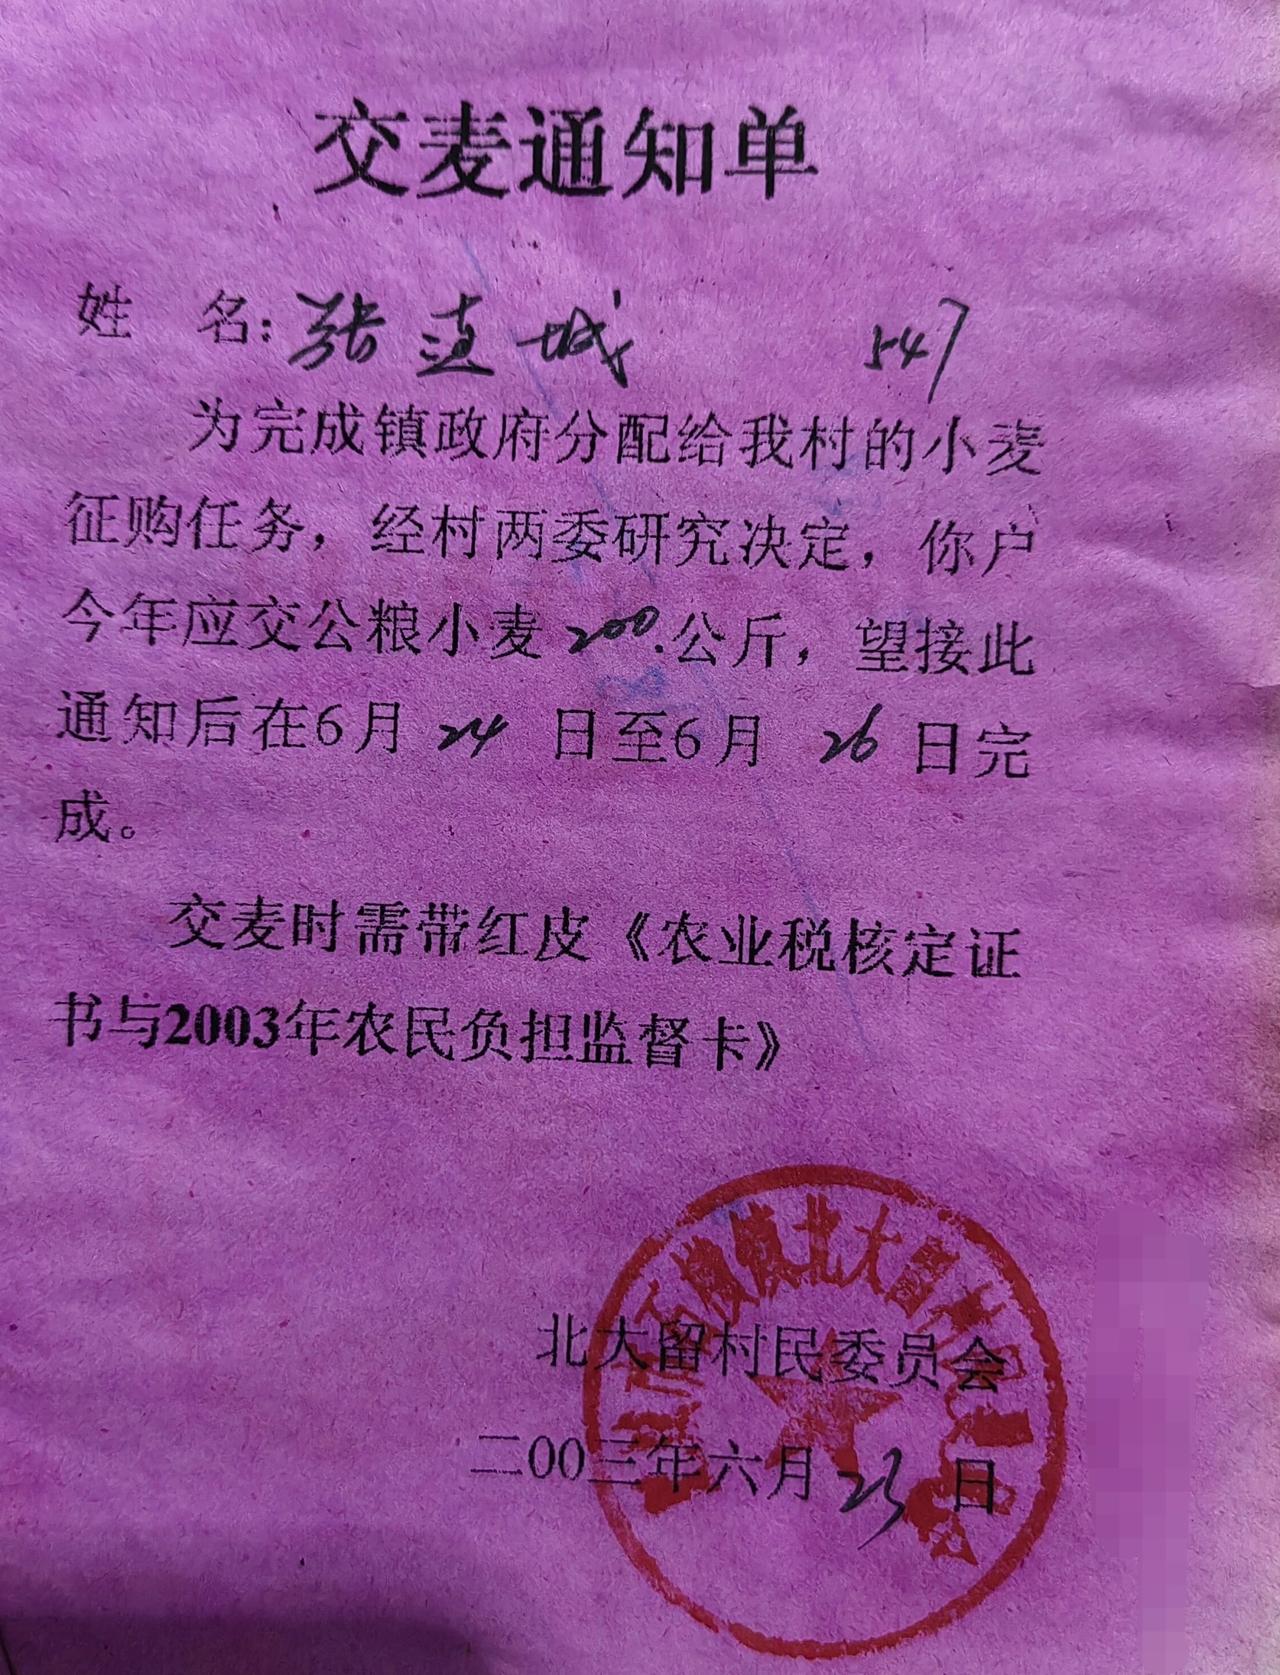 交麦通知单
姓 名：张 城 547
为完成镇政府分配给我村的小麦
征购任务，经村两委研究决定，你户
今年应交公粮小麦200.公斤，望接此
通知后在6月 24 日至6月 26 日完
成。
交麦时需带红皮《农业税核定证
书与2003年农民负担监督卡》
镇北大留村
北大留村民委员会
二00三年六月23日